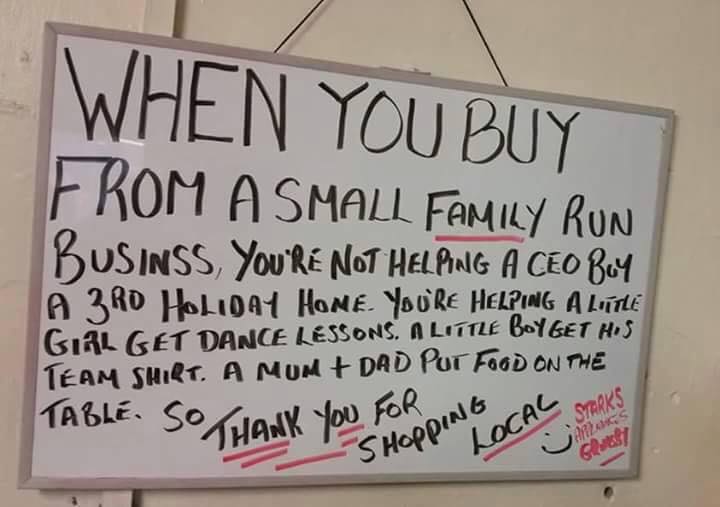 WHEN YOU BUY
FROM A SMALL FAMILY RUN
BUSINSS, YOU'RE NOT HELPING A CEO BUY
A 3RD HOLIDAY HOME. YOU'RE HELPING A LITTLE
GIRL GET DANCE LESSONS. A LITTLE BOY GET HIS
TEAM SHIRT. A MUM + DAD PUT FOOD ON THE
TABLE. SO THANK YOU FOR
SHOPPING LOCAL
STARKS
GRIMSBY